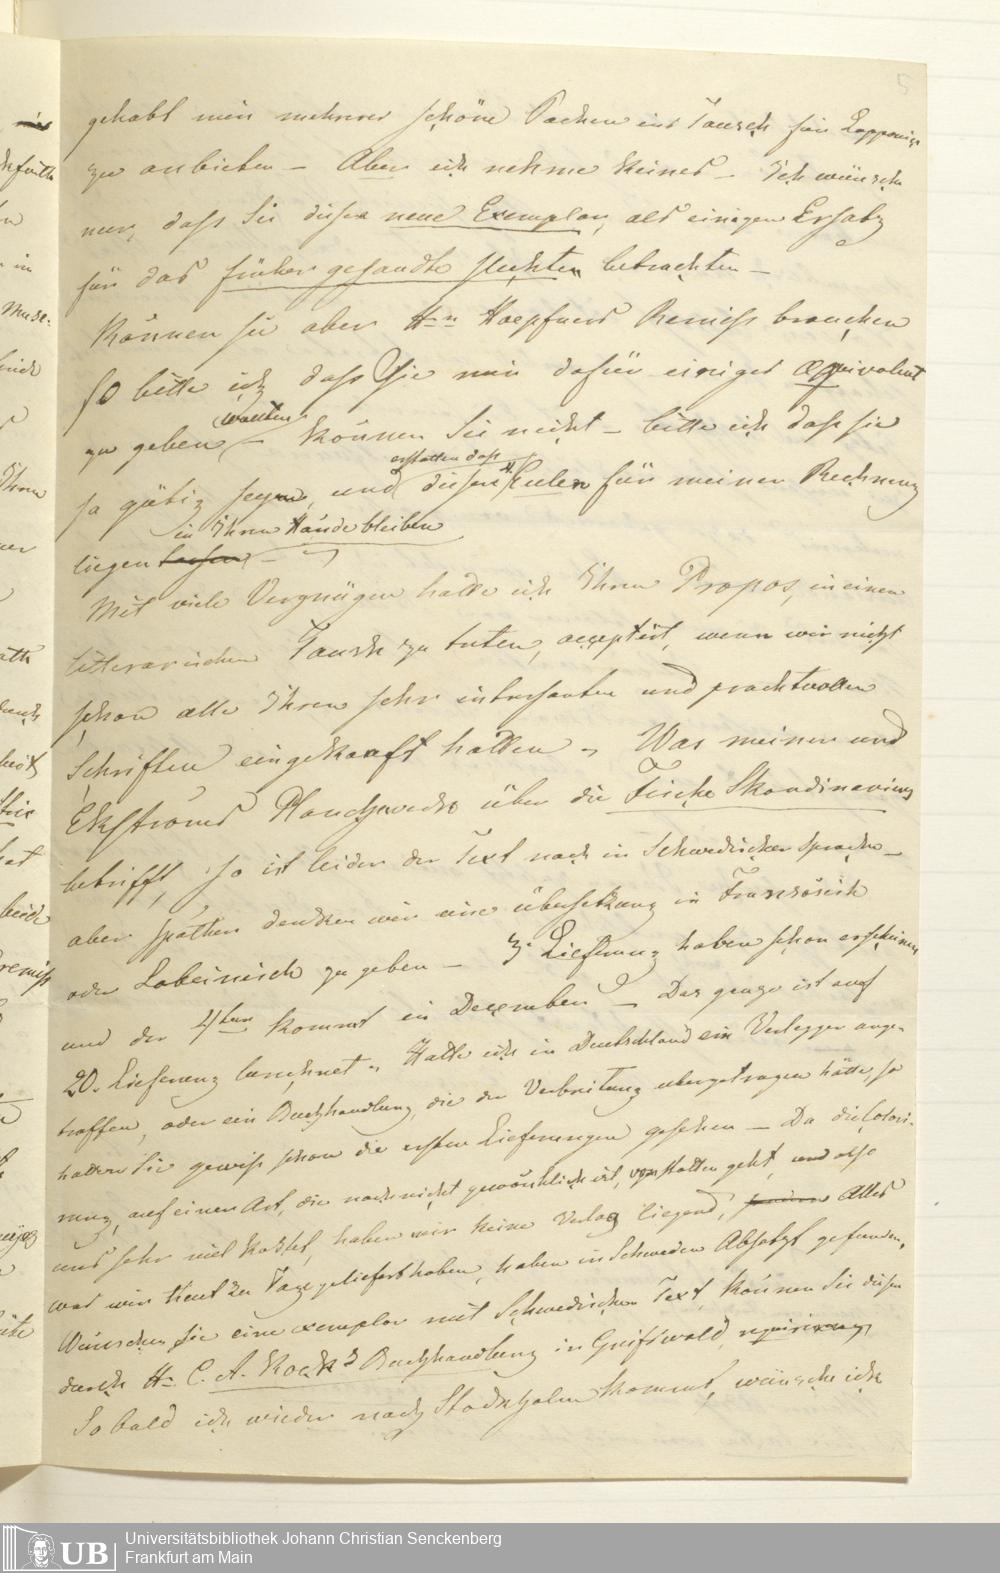 5
gehabt mir mehrere schöne Sachen ins Tausch für Lapponica
zu anbieten – Aber ich nehme keines – Ich wünsche
nur, dass Sie dieses neue Exemplar, als einigen Ersatz
für das früher gesandte schlechten betrachten –
Können sie aber Hn Hoepfners Remiss brauchen
so bitte ich, dass Sie mir dafür einiges æquivalent
zu geben wollten – können Sie nicht – bitte ich dass sie
so gütig seyn, und erstatten dass diese Eulen für meiner Rechnung
liegen lassen in Ihren Hände bleiben –
Mit viele Vergnügen hatte ich Ihren Propos, in einen
litterarischen Tausch zu treten, acceptirt, wenn wir nicht
schon alle Ihren sehr interessanten und prachtvollen
Schriften eingekauft hatten. Was meinen und
Ekströms Handzwecke über die Fische Skandinaviens
betrifft, so ist leider der Text nach in Schwedischer Sprache –
aber später dencken wir eine übersetzung in Französisch
oder Lateinisch zu geben – 3. Lieferung haben schon erschienen
und der 4ten kommt in December – Das ganze ist auf
20. Lieferung berechnet. Hatte ich in Deutschland ein Verlegger ange-
troffen, oder ein Buchhandlung, die der Verbreitung übergetragen hätte, so
hatten Sie gewiss schon die ersten Lieferungen gesehen – Da die Colori-
rung, auf einen Art, die noch nicht gewöhnlich ist, von statten geht, und also
uns sehr viel kostet, haben wir keine Verlag liegend, Alles
was wir heut zu Tage geliefert haben, haben in Schweden Absatz gefunden.
Wünschen sie eine exemplar mit Schwedischen Text, können Sie diesen
durch Hn C. A. Kochs Buchhandlung in Greifswald, requirieren
So bald ich wieder nach Stockholm komme, wünsche ich
Universitätsbibliothek Johann Christian Senckenberg
Frankfurt am Main
UB